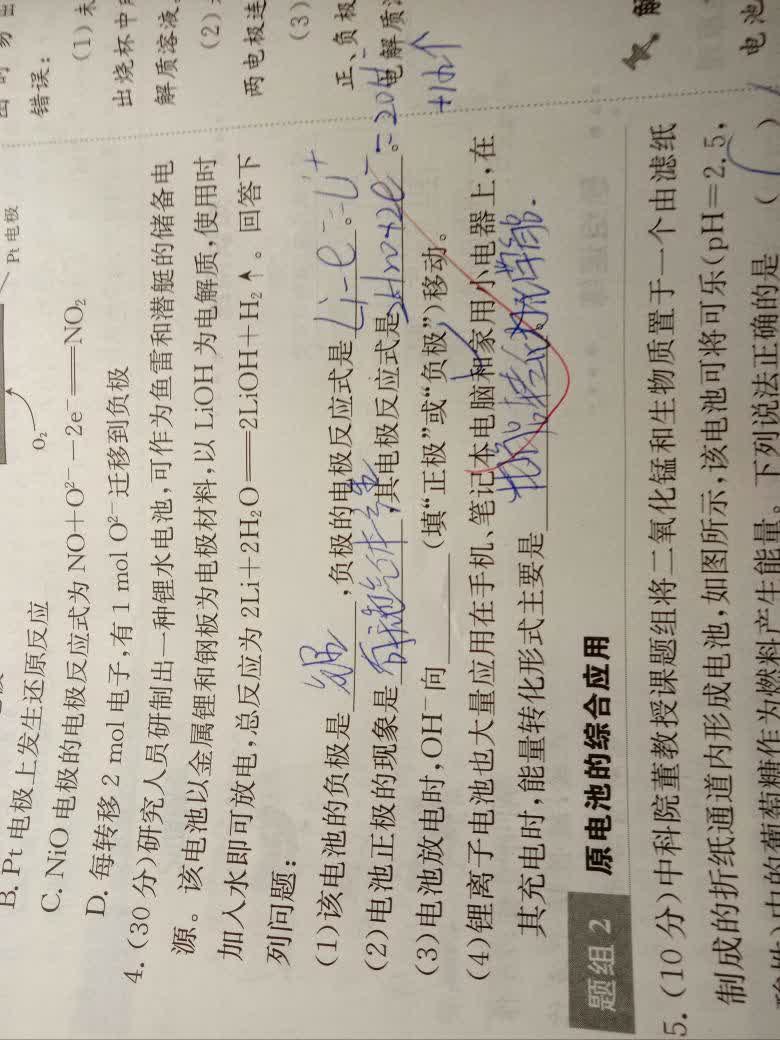 错误：
(1)未
出烧杯中
解质溶液。
(2)
两电极连
(3)
正、负极
电解质
解
电池
Pt电极
O₂
B. Pt电极上发生还原反应
C. NiO电极的电极反应式为NO+O²⁻-2e⁻══NO₂
D. 每转移2 mol电子,有1 mol O²⁻迁移到负极
4. (30分)研究人员研制出一种锂水电池,可作为鱼雷和潜艇的储备电
源。该电池以金属锂和钢板为电极材料,以LiOH为电解质,使用时
加入水即可放电,总反应为2Li+2H₂O══2LiOH+H₂↑。回答下
列问题：
(1)该电池的负极是 锂 ,负极的电极反应式是 Li-e⁻=Li⁺
(2)电池正极的现象是 有气体 ,其电极反应式是 2H₂O+2e⁻=2OH⁻+H₂↑
(3)电池放电时,OH⁻向 (填“正极”或“负极”)移动。
(4)锂离子电池也大量应用在手机、笔记本电脑和家用小电器上,在
其充电时,能量转化形式主要是 。
题组2 原电池的综合应用
5. (10分)中科院董教授课题组将二氧化锰和生物质置于一个由滤纸
制成的折纸通道内形成电池,如图所示,该电池可将可乐(pH=2.5,
中的葡萄糖作为燃料产生能量。下列说法正确的是 ( )